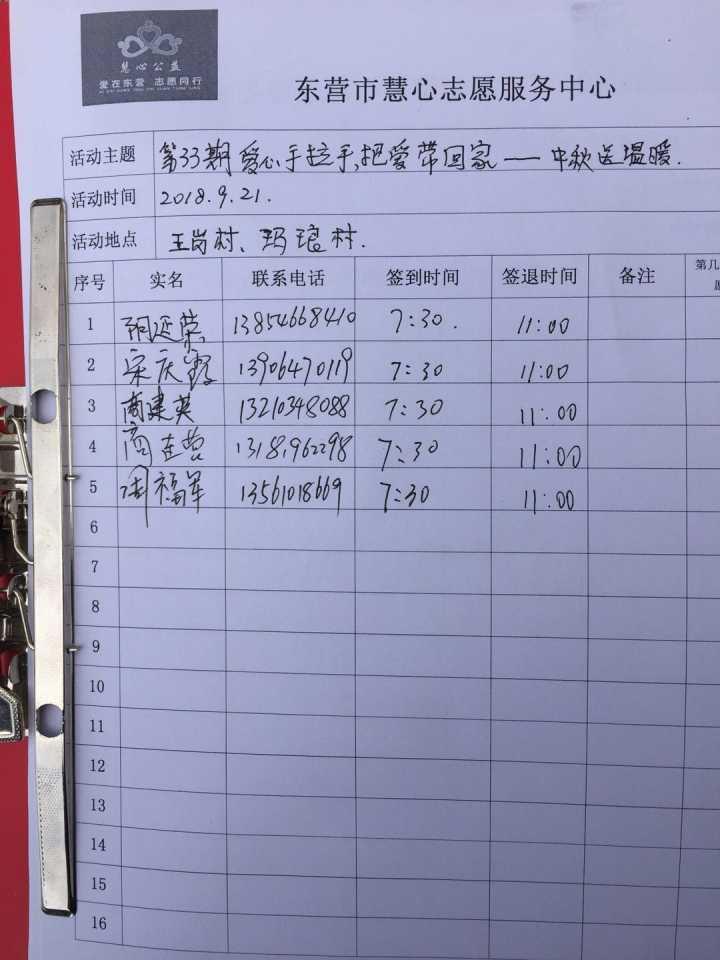 慧心公益
爱在东营 志愿同行
东营市慧心志愿服务中心
活动主题 第33期爱心手拉手,把爱带回家——中秋送温暖.
活动时间 2018.9.21.
活动地点 王岗村、玛琅村.
序号 实名 联系电话 签到时间 签退时间 备注 第几
1 13854668410 7:30. 11:00
2 宋庆 13906470119 7:30 11:00
3 商建英 13210348088 7:30 11:00
4 商 13181962298 7:30 11:00
5 周福军 13561018669 7:30 11:00
6
7
8
9
10
11
12
13
14
15
16